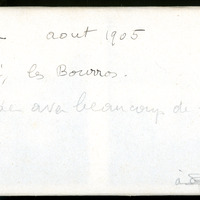 aout 1905
, les Bourros.
avec beaucoup de
à